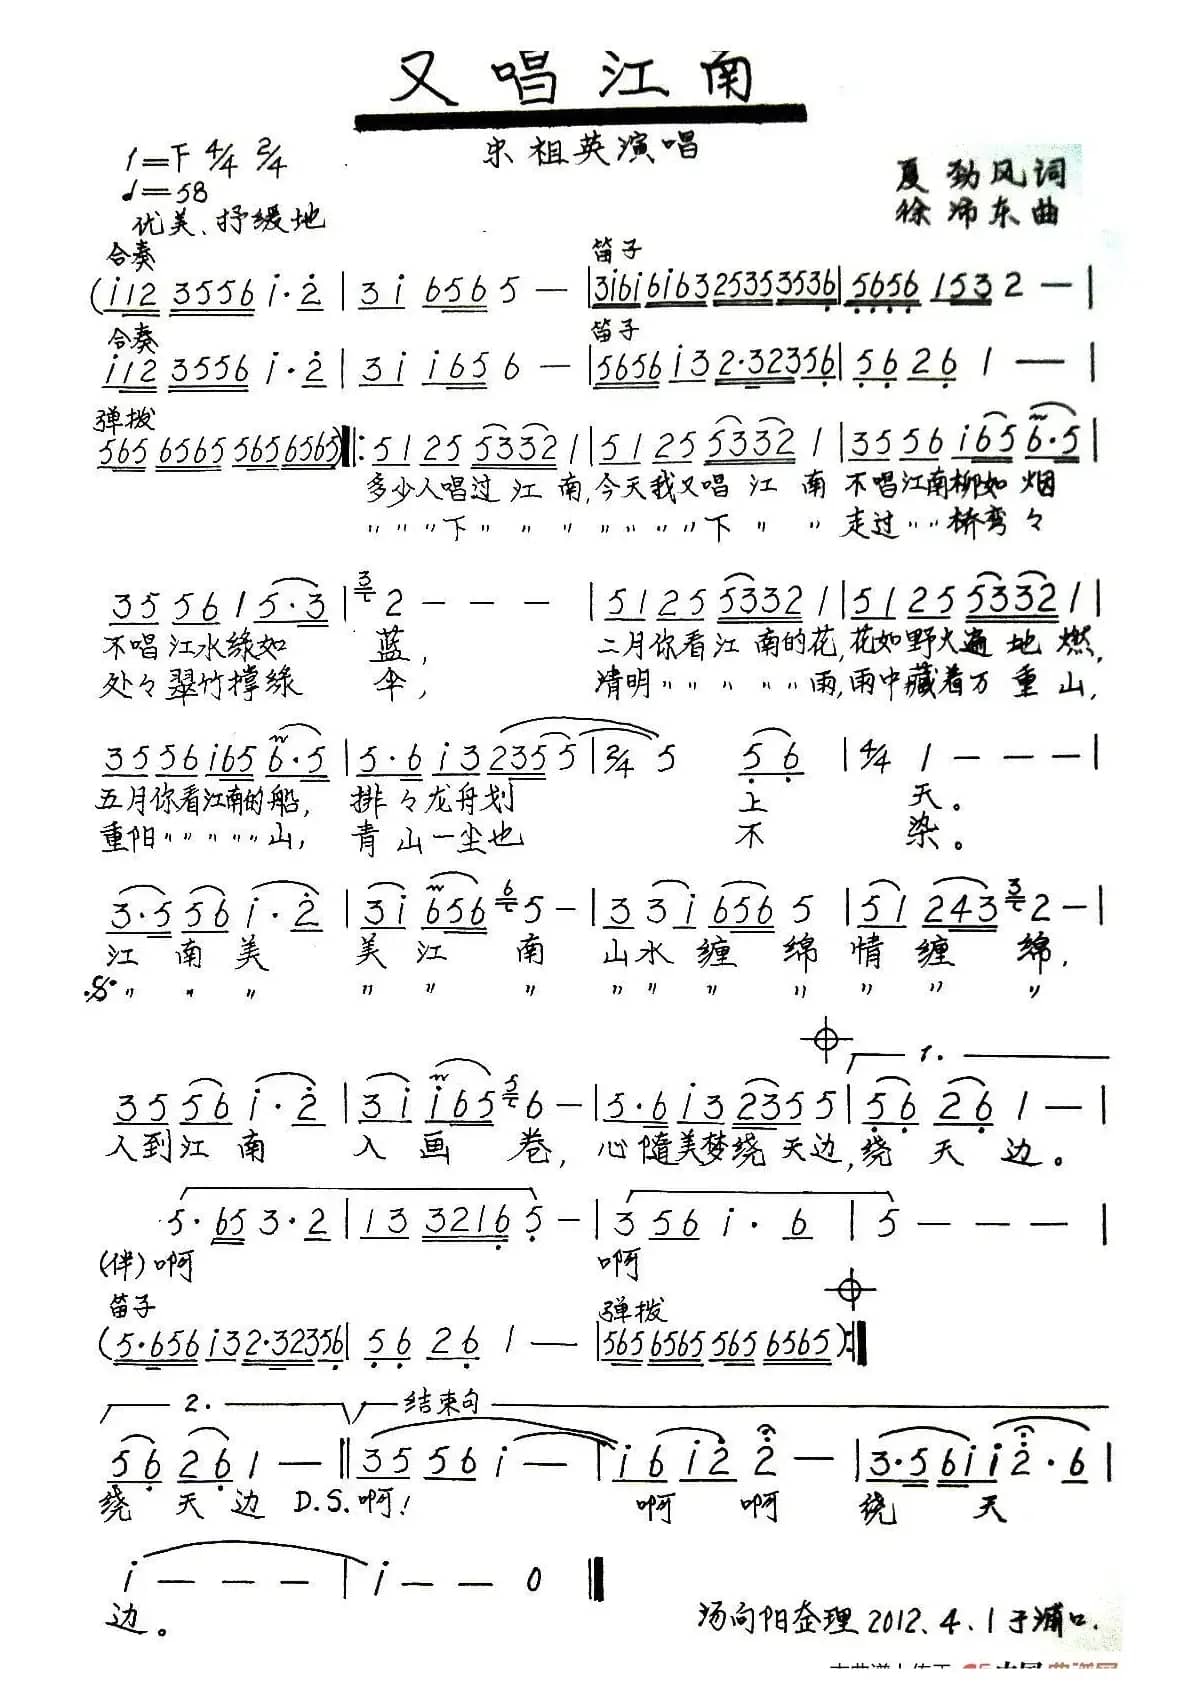 又唱江南
宋祖英演唱
1=F 4/4 2/4
♩=58
优美、抒缓地
夏劲风词
徐沛东曲
合奏 笛子
(i12 3556 i·2 | 3i 6565 5 — | 3i6i6i63 25353536 | 5656 153 2 — |
合奏 笛子
i12 3556 i·2 | 3i i65 6 — | 5656 i3 2·32356 | 56 26 1 — — |
弹拨
565 6565 565 6565) |: 5125 5332 1 | 5125 5332 1 | 3556 i65 6·5 |
多少人唱过江南,今天我又唱江南 不唱江南柳如烟
〃〃〃下〃〃〃〃〃〃〃下〃〃 走过〃〃桥弯々
3556 1 5·3 | 3 2 — — — | 5125 5332 1 | 5125 5332 1 |
不唱江水綠如 蓝, 二月你看江南的花,花如野火遍地燃,
处々翠竹撑綠 伞, 清明〃〃〃〃〃雨,雨中藏着万重山,
3556 i65 6·5 | 5·6 i3 235 5 | 2/4 5 56 | 4/4 1 — — — |
五月你看江南的船, 排々龙舟划 上 天。
重阳〃〃〃〃〃山, 青山一尘也 不 染。
3·5 56 i·2 | 3i 656 6 5 — | 3 3i 656 5 | 51 243 3 2 — |
江南美 美江南 山水缠绵情缠绵,
𝄋 〃〃〃 〃〃〃 〃〃〃〃〃〃〃
1.
35 56 i·2 | 3i i65 5 6 — | 5·6 i3 235 5 | 56 26 1 — |
人到江南 入画卷, 心随美梦绕天边,绕天边。
5·65 3·2 | 13 3216 5 — | 3 56 i·6 | 5 — — — |
(伴)啊 啊
笛子 弹拨
(5·656 i3 2·32356 | 56 26 1 — | 565 6565 565 6565) :|
2. 结束句
56 26 1 — || 35 56 i — | i6 i2 2 — | 3·56i i 2·6 |
绕天边 D.S.啊! 啊 啊 绕天
i — — — | i — — 0 ||
边。
汤向阳整理2012.4.1于浦口.